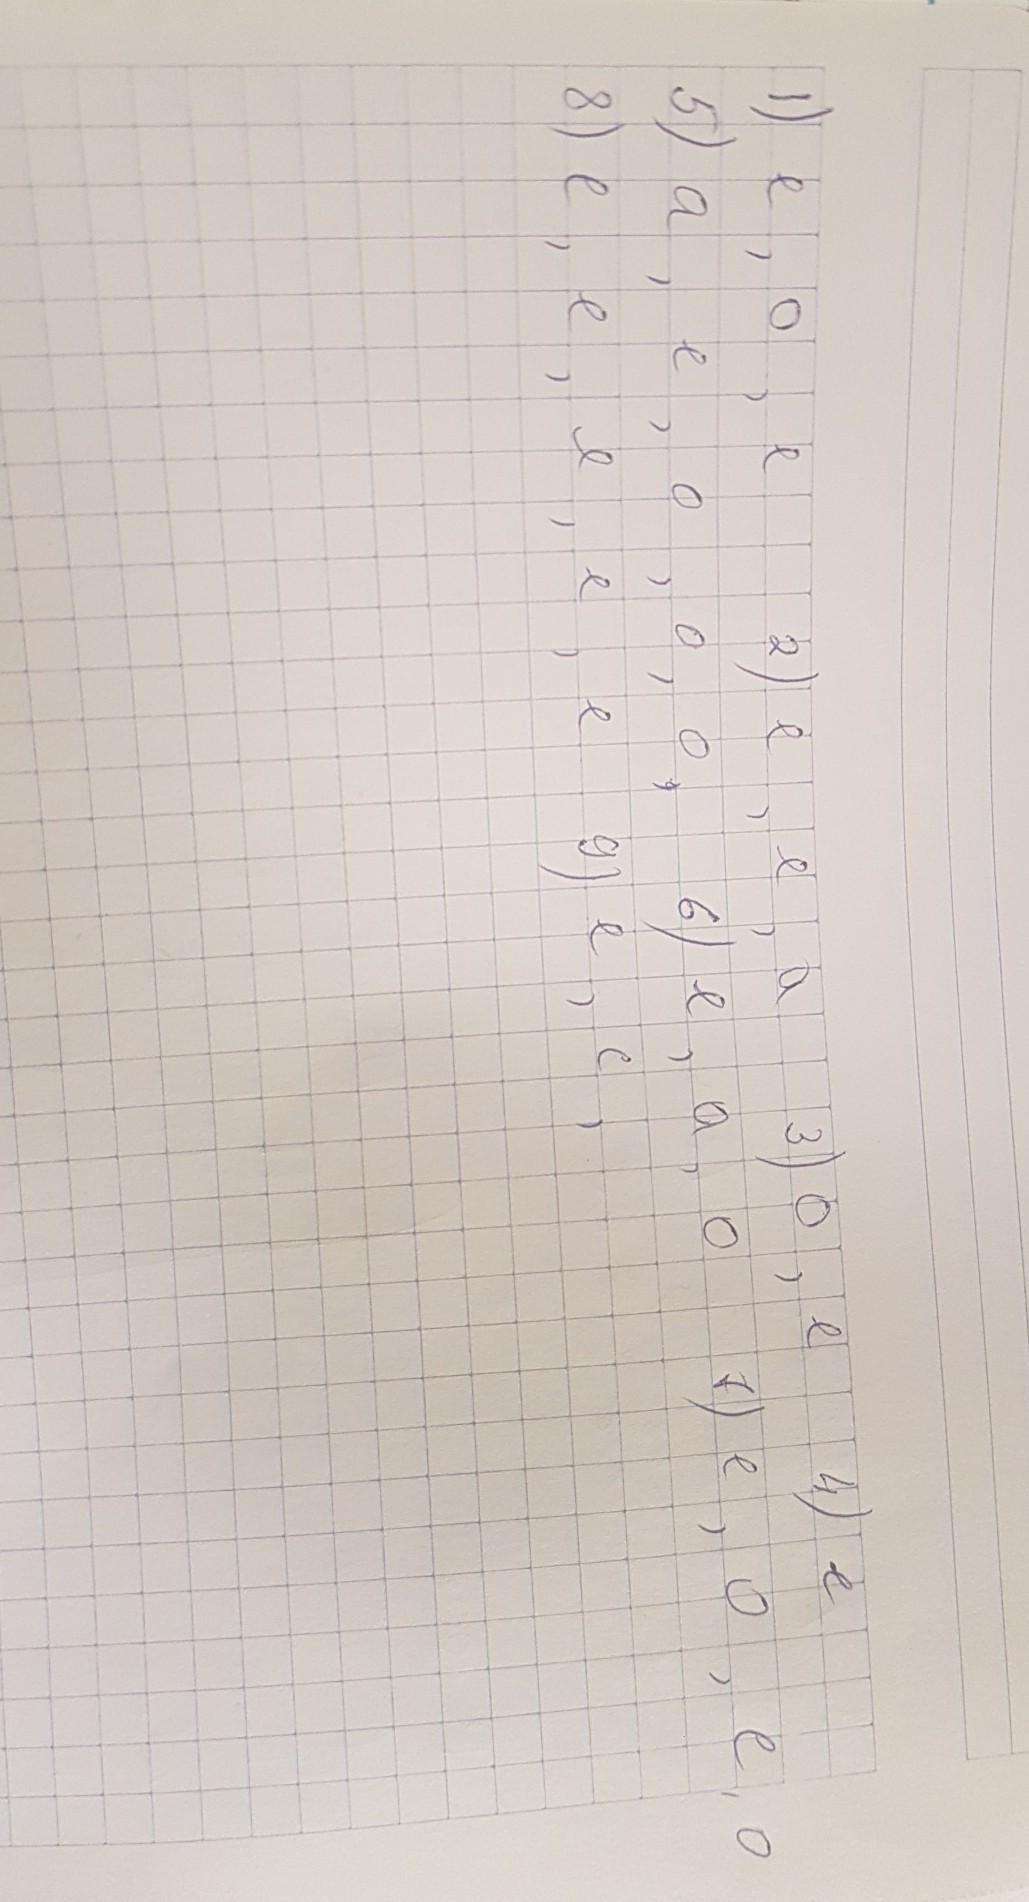 1) е, о, е 2) е, е, а 3) о, е 4) е
5) а, е, о, о, о, 6) е, а, о 7) е, о, е, о
8) е, е, е, е, е 9) е, е,